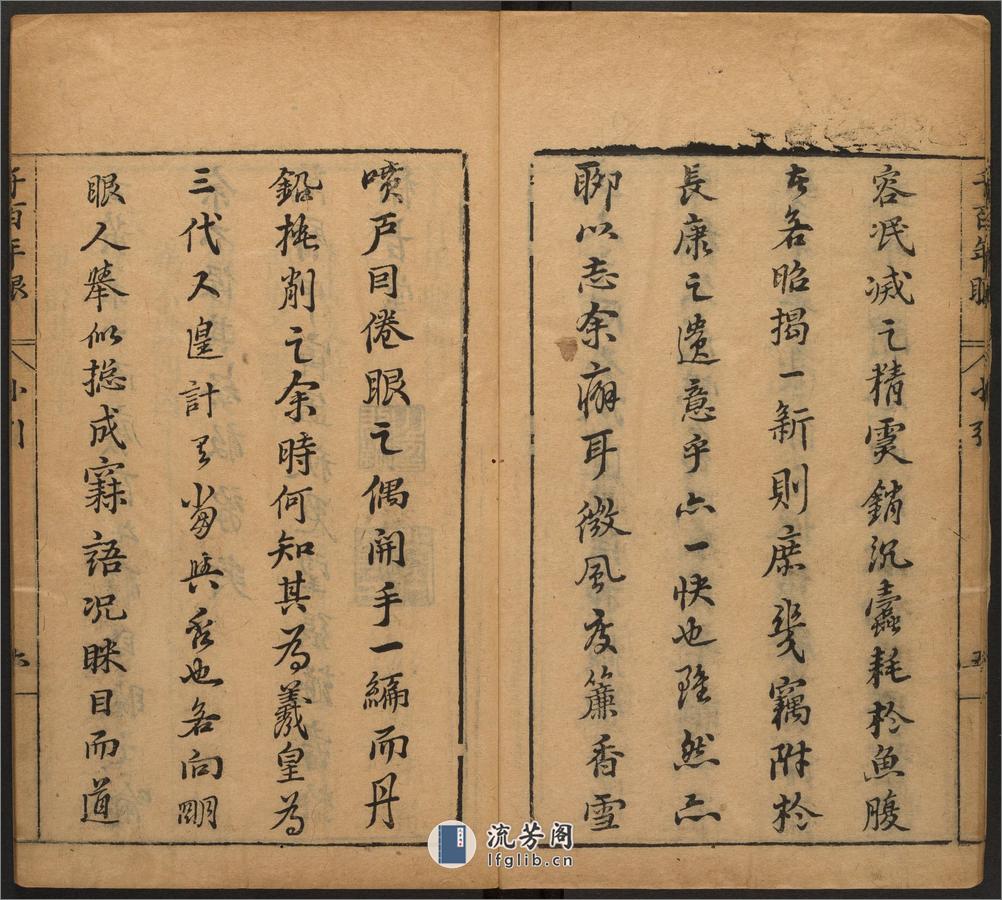 千百年眼 小引 五
容泯滅之精靈銷沉蠹耗於魚腹
者各昭揭一新則庶幾竊附於
長康之遺意乎亦一快也雖然亦
聊以志余癖耳微風度簾香雪
噴戶目倦眼之偶開手一編而丹
鉛削之余時何知其為羲皇為
三代又遑計其當與否也向明
眼人舉似總成語況眯目而道
千百年眼 小引 六
流芳阁
lfglib.cn